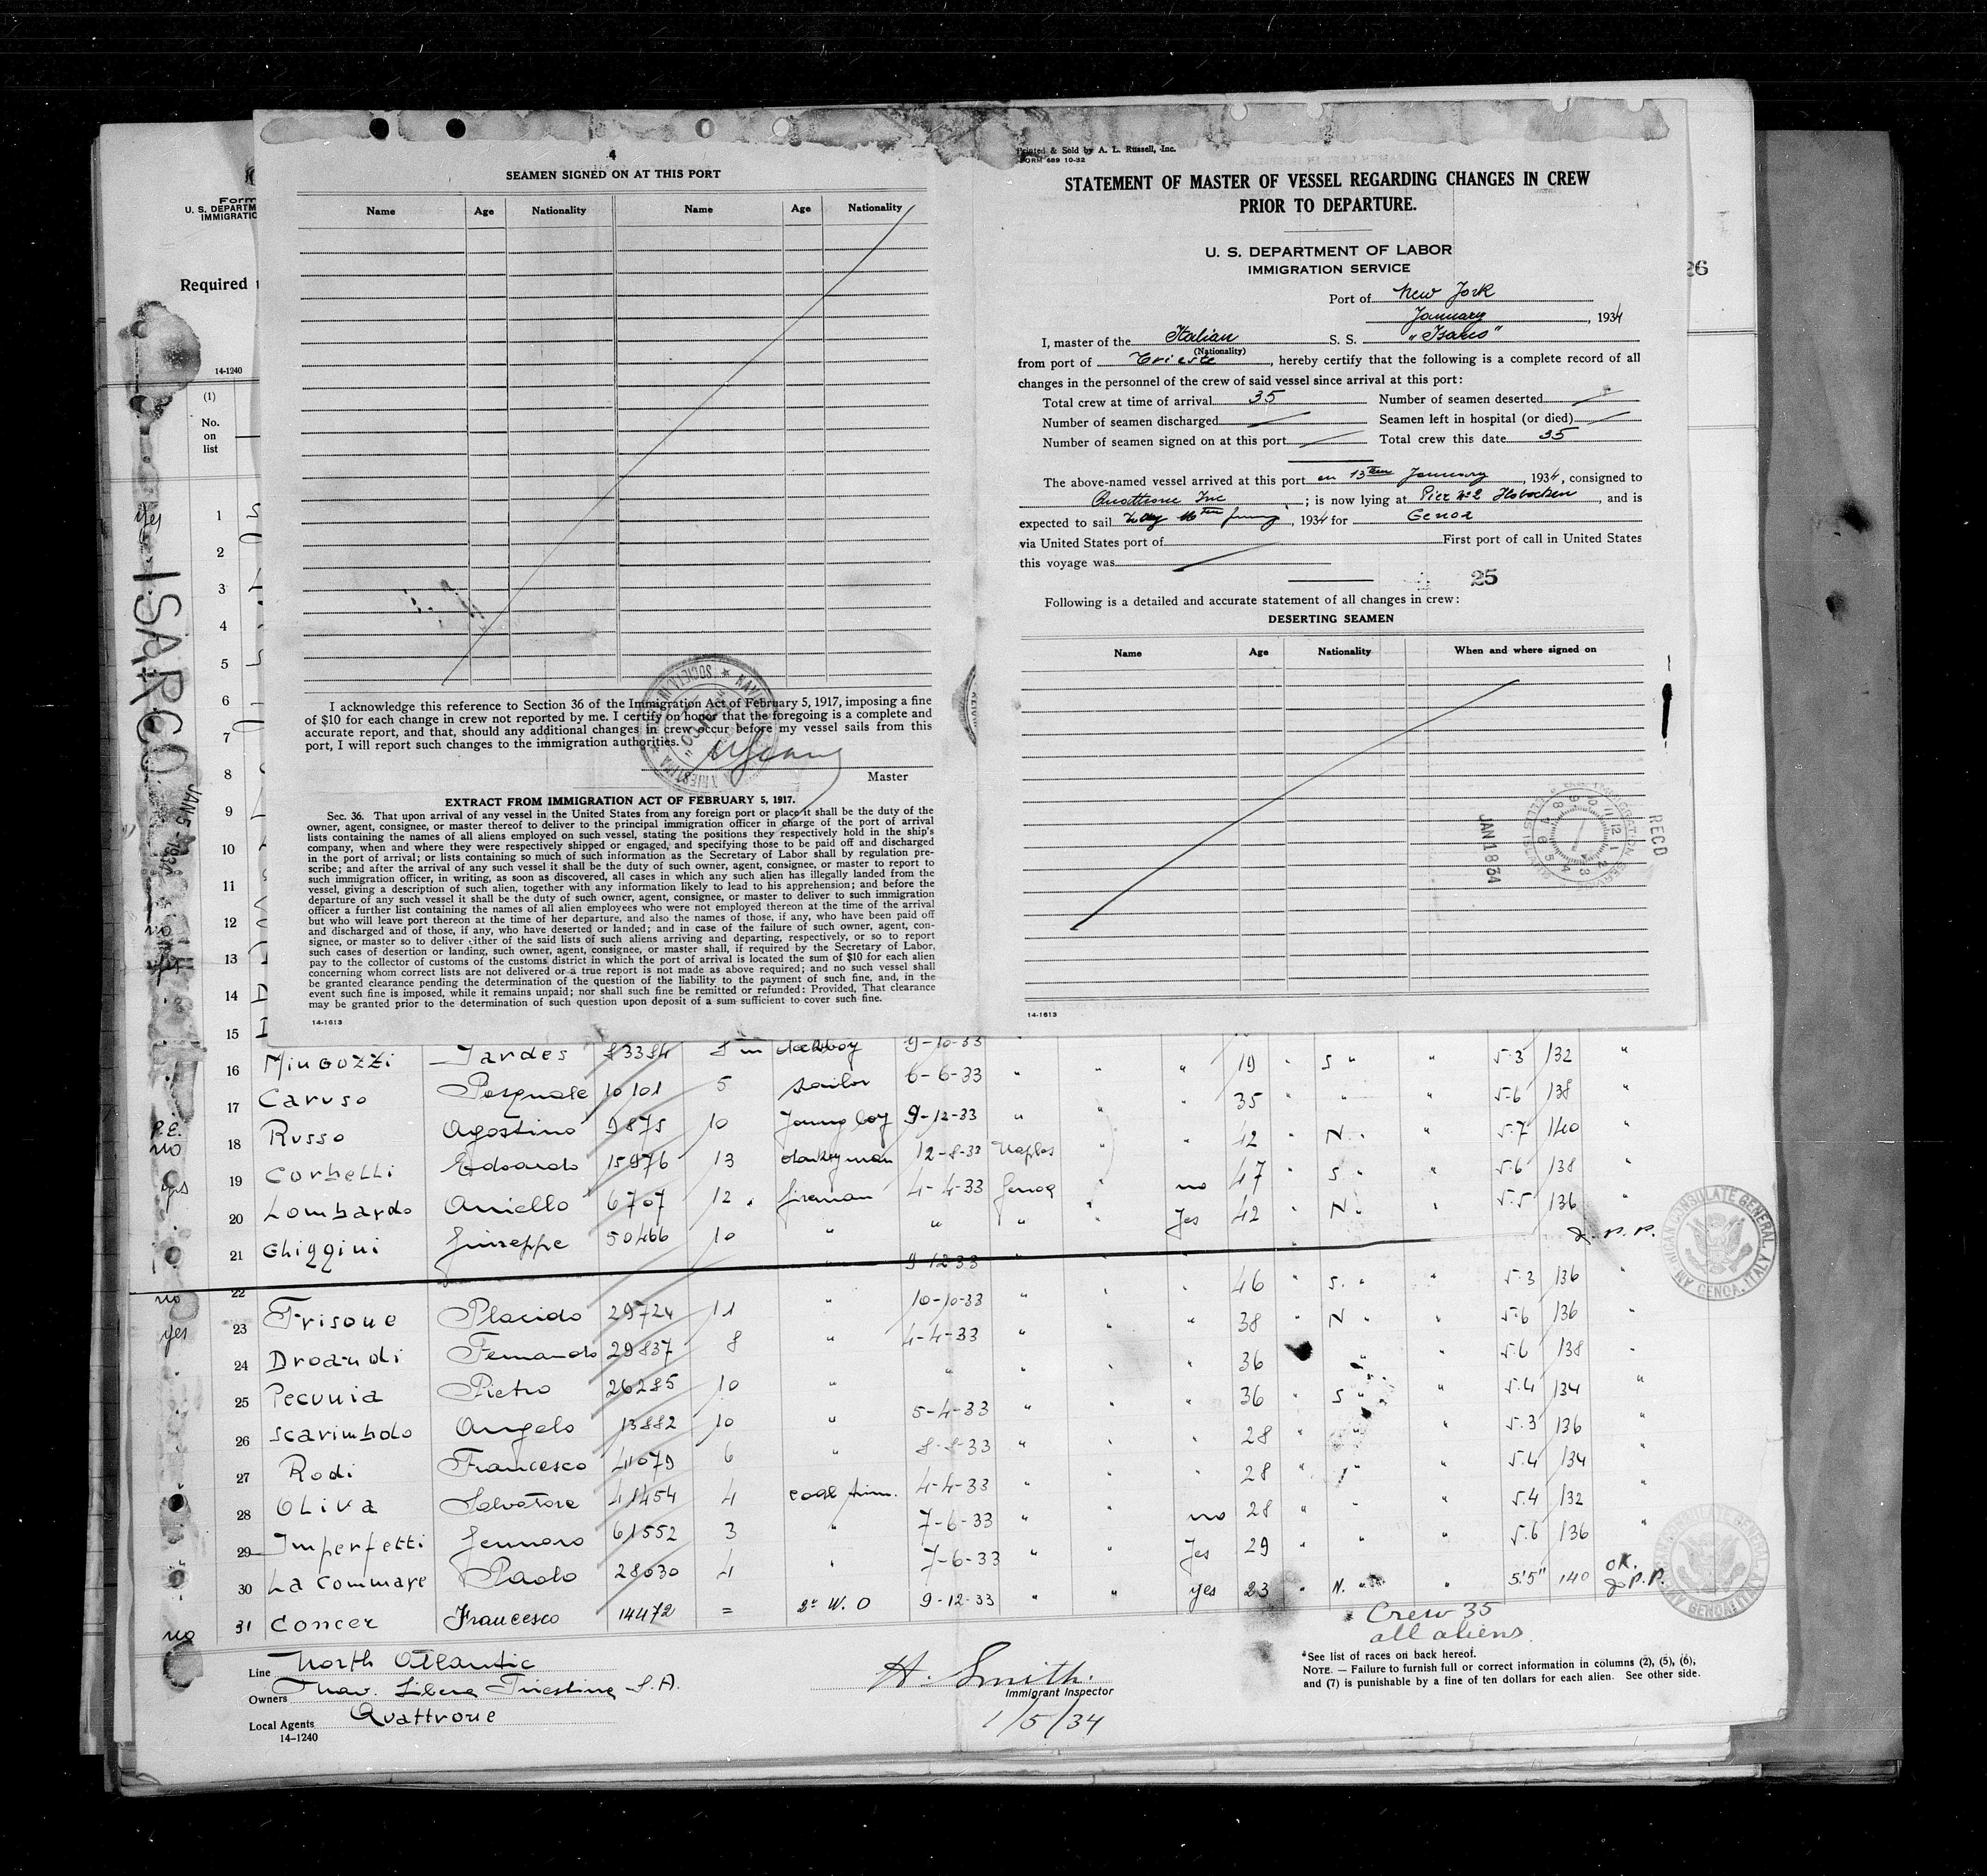 4
SEAMEN SIGNED ON AT THIS PORT
Name Age Nationality Name Age Nationality
I acknowledge this reference to Section 36 of the Immigration Act of February 5, 1917, imposing a fine
of $10 for each change in crew not reported by me. I certify on honor that the foregoing is a complete and
accurate report, and that, should any additional changes in crew occur before my vessel sails from this
port, I will report such changes to the immigration authorities.
Master
EXTRACT FROM IMMIGRATION ACT OF FEBRUARY 5, 1917.
Sec. 36. That upon arrival of any vessel in the United States from any foreign port or place it shall be the duty of the
owner, agent, consignee, or master thereof to deliver to the principal immigration officer in charge of the port of arrival
lists containing the names of all aliens employed on such vessel, stating the positions they respectively hold in the ship's
company, when and where they were respectively shipped or engaged, and specifying those to be paid off and discharged
in the port of arrival; or lists containing so much of such information as the Secretary of Labor shall by regulation pre-
scribe; and after the arrival of any such vessel it shall be the duty of such owner, agent, consignee, or master to report to
such immigration officer, in writing, as soon as discovered, all cases in which any such alien has illegally landed from the
vessel, giving a description of such alien, together with any information likely to lead to his apprehension; and before the
departure of any such vessel it shall be the duty of such owner, agent, consignee, or master to deliver to such immigration
officer a further list containing the names of all alien employees who were not employed thereon at the time of the arrival
but who will leave port thereon at the time of her departure, and also the names of those, if any, who have been paid off
and discharged and of those, if any, who have deserted or landed; and in case of the failure of such owner, agent, con-
signee, or master so to deliver either of the said lists of such aliens arriving and departing, respectively, or so to report
such cases of desertion or landing, such owner, agent, consignee, or master shall, if required by the Secretary of Labor,
pay to the collector of customs of the customs district in which the port of arrival is located the sum of $10 for each alien
concerning whom correct lists are not delivered or a true report is not made as above required; and no such vessel shall
be granted clearance pending the determination of the question of the liability to the payment of such fine, and, in the
event such fine is imposed, while it remains unpaid; nor shall such fine be remitted or refunded: Provided, That clearance
may be granted prior to the determination of such question upon deposit of a sum sufficient to cover such fine.
14-1613
Printed & Sold by A. L. Russell, Inc.
FORM 689 10-32
STATEMENT OF MASTER OF VESSEL REGARDING CHANGES IN CREW
PRIOR TO DEPARTURE.
U. S. DEPARTMENT OF LABOR
IMMIGRATION SERVICE
Port of New York
January, 1934
I, master of the Italian S. S. "Isarco"
(Nationality)
from port of Trieste, hereby certify that the following is a complete record of all
changes in the personnel of the crew of said vessel since arrival at this port:
Total crew at time of arrival 35 Number of seamen deserted
Number of seamen discharged Seamen left in hospital (or died)
Number of seamen signed on at this port Total crew this date 35
The above-named vessel arrived at this port on 13 January, 1934, consigned to
Quattrone Inc; is now lying at Pier No 2 Hoboken, and is
expected to sail today 16, 1934 for Genoa
via United States port of First port of call in United States
this voyage was
25
Following is a detailed and accurate statement of all changes in crew:
DESERTING SEAMEN
Name Age Nationality When and where signed on
RECD
JAN 18 34
14-1613
Form
U. S. DEPARTM
IMMIGRATIO
Required
26
14-1240
(1)
No.
on
list
ISARCO
JAN 5 1934
yes 1
2
3
4
5
6
7
8
9
10
11
12
13
14
15
16 Mingozzi Jardes 83384 8 m deckboy 9-10-33 " " " 19 " S " " 5.3 132 "
17 Caruso Pasquale 10101 5 sailor 6-6-33 " " " 35 " " " 5-6 138 "
P.E. no 18 Russo Agostino 9875 10 Young boy 9-12-33 " " " 42 " N. " 5.7 140 "
19 Corbelli Edoardo 15976 13 donkeyman 12-8-33 Naples " no 47 " S " " 5.6 138 "
yes 20 Lombardo Aniello 6707 12 fireman 4-4-33 Genoa " Yes 42 " N " 5-5 136 "
21 Ghiggini Giuseppe 50466 10 " " " P.P.
no 22 " 9-12-33 " " " 46 " S. " " 5.3 136 "
yes 23 Frisone Placido 29724 11 " 10-10-33 " " " 38 " N " " 5.6 136 "
24 Droandi Fernando 29837 8 " 4-4-33 " " 36 " 5.6 138 "
25 Pecunia Pietro 26285 10 " " " " 36 " S " " 5.4 134 "
26 Scarimbolo Angelo 13882 10 " 5-4-33 " " 28 " " 5.3 136 "
27 Rodi Francesco 41079 6 " 8-8-33 " " " 28 " " 5.4 134 "
28 Oliva Salvatore 41454 4 coal trim. 4-4-33 " " no 28 " " " 5.4 132 "
29 Imperfetti Gennaro 61552 3 " 7-6-33 " " Yes 29 " " " 5.6 136 "
30 La Commare Paolo 28030 4 " 7-6-33 " " yes 23 " N. " " 5'.5" 140 OK. P.P.
no 31 Concer Francesco 14472 = 2º W. O 9-12-33 " "
Crew 35
all aliens
Line North Atlantic
Owners Nav. Libera Triestina S.A.
Local Agents Quattrone
14-1240
H. Smith
Immigrant Inspector
1/5/34
*See list of races on back hereof.
NOTE. — Failure to furnish full or correct information in columns (2), (5), (6),
and (7) is punishable by a fine of ten dollars for each alien. See other side.
AMERICAN CONSULATE GENERAL GENOA, ITALY